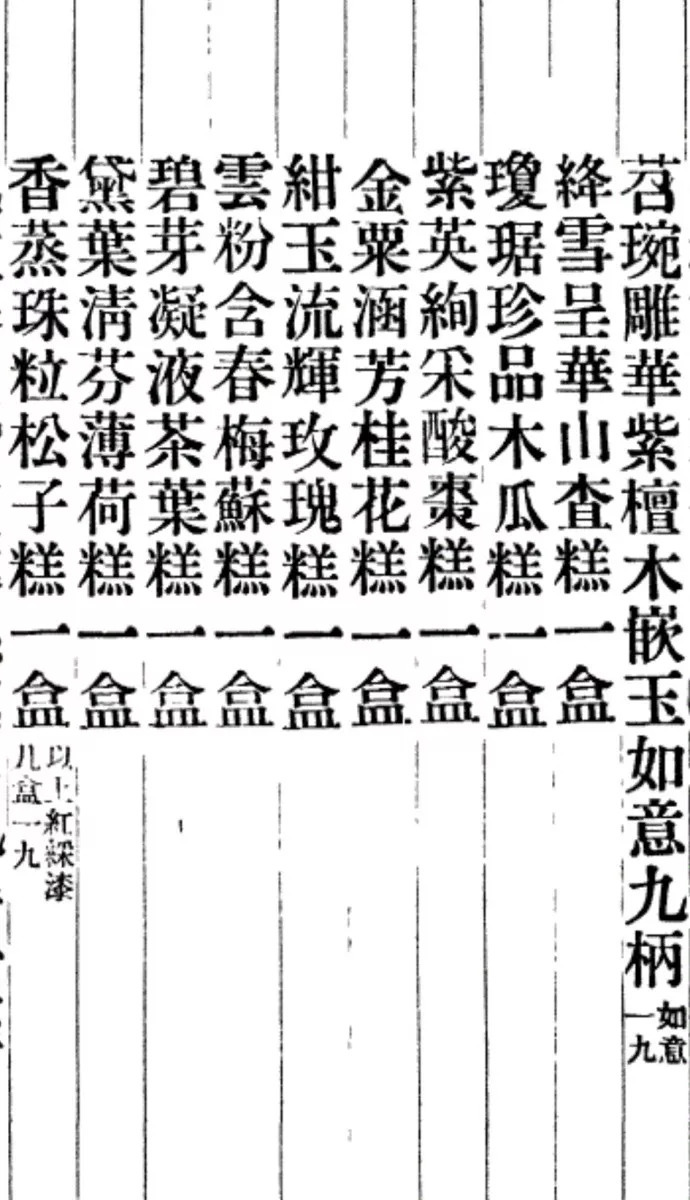 苕琬雕華紫檀木嵌玉如意九柄 如意一九
絳雪呈華山査糕一盒
瓊琚珍品木瓜糕一盒
紫英絢采酸棗糕一盒
金粟涵芳桂花糕一盒
紺玉流輝玫瑰糕一盒
雲粉含春梅蘇糕一盒
碧芽凝液茶葉糕一盒
黛葉淸芬薄荷糕一盒
香蒸珠粒松子糕一盒 以上紅綵漆九盒一九